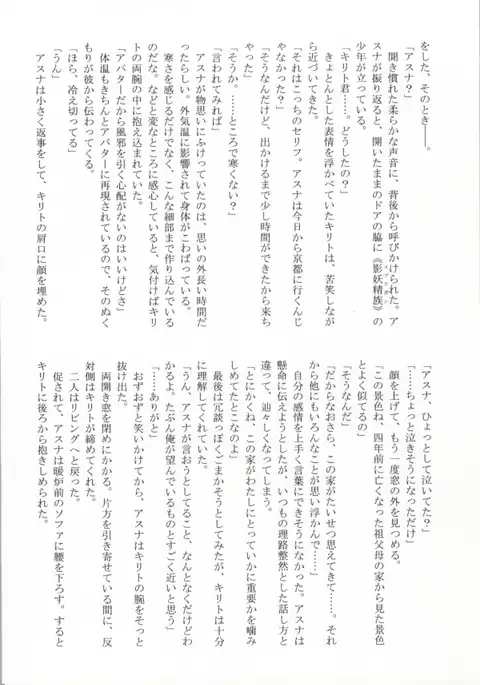 をした、そのとき――。
「アスナ？」
　聞き慣れた柔らかな声音に、背後から呼びかけられた。ア
スナが振り返ると、開いたままのドアの脇に《影妖精族》の
少年が立っている。
「キリト君……。どうしたの？」
　きょとんとした表情を浮かべていたキリトは、苦笑しなが
ら近づいてきた。
「それはこっちのセリフ。アスナは今日から京都に行くんじ
ゃなかった？」
「そうなんだけど、出かけるまで少し時間ができたから来ち
ゃった」
「そうか。……ところで寒くない？」
「言われてみれば」
　アスナが物思いにふけっていたのは、思いの外長い時間だ
ったらしい。外気温に影響されて身体がこわばっている。
　寒さを感じるだけでなく、こんな細部まで作り込んでいる
のだな。などと変なところに感心していると、気付けばキリ
トの両腕の中に抱え込まれていた。
「アバターだから風邪を引く心配がないのはいいけどさ」
　体温もきちんとアバターに再現されているので、そのぬく
もりが彼から伝わってくる。
「ほら、冷え切ってる」
「うん」
　アスナは小さく返事をして、キリトの肩口に顔を埋めた。
「アスナ、ひょっとして泣いてた？」
「……ちょっと泣きそうになっただけ」
　顔を上げて、もう一度窓の外を見つめる。
「この景色ね、四年前に亡くなった祖父母の家から見た景色
とよく似てるの」
「そうなんだ」
「だからなおさら、この家がたいせつ思えてきて……。それ
から他にもいろんなことが思い浮かんで……」
　自分の感情を上手く言葉にできそうになかった。アスナは
懸命に伝えようとしたが、いつもの理路整然とした話し方と
違って、辿々しくなってしまう。
「とにかくね、この家がわたしにとっていかに重要かを噛み
しめてたとこなのよ」
　最後は冗談っぽくごまかそうとしてみたが、キリトは十分
に理解してくれていた。
「うん、アスナが言おうとしてること、なんとなくだけどわ
かるよ。たぶん俺が望んでいるものとすごく近いと思う」
「……ありがと」
　おずおずと笑いかけてから、アスナはキリトの腕をそっと
抜け出た。
　両開き窓を閉めにかかる。片方を引き寄せている間に、反
対側はキリトが締めてくれた。
　二人はリビングへと戻った。
　促されて、アスナは暖炉前のソファに腰を下ろす。すると
キリトに後ろから抱きしめられた。